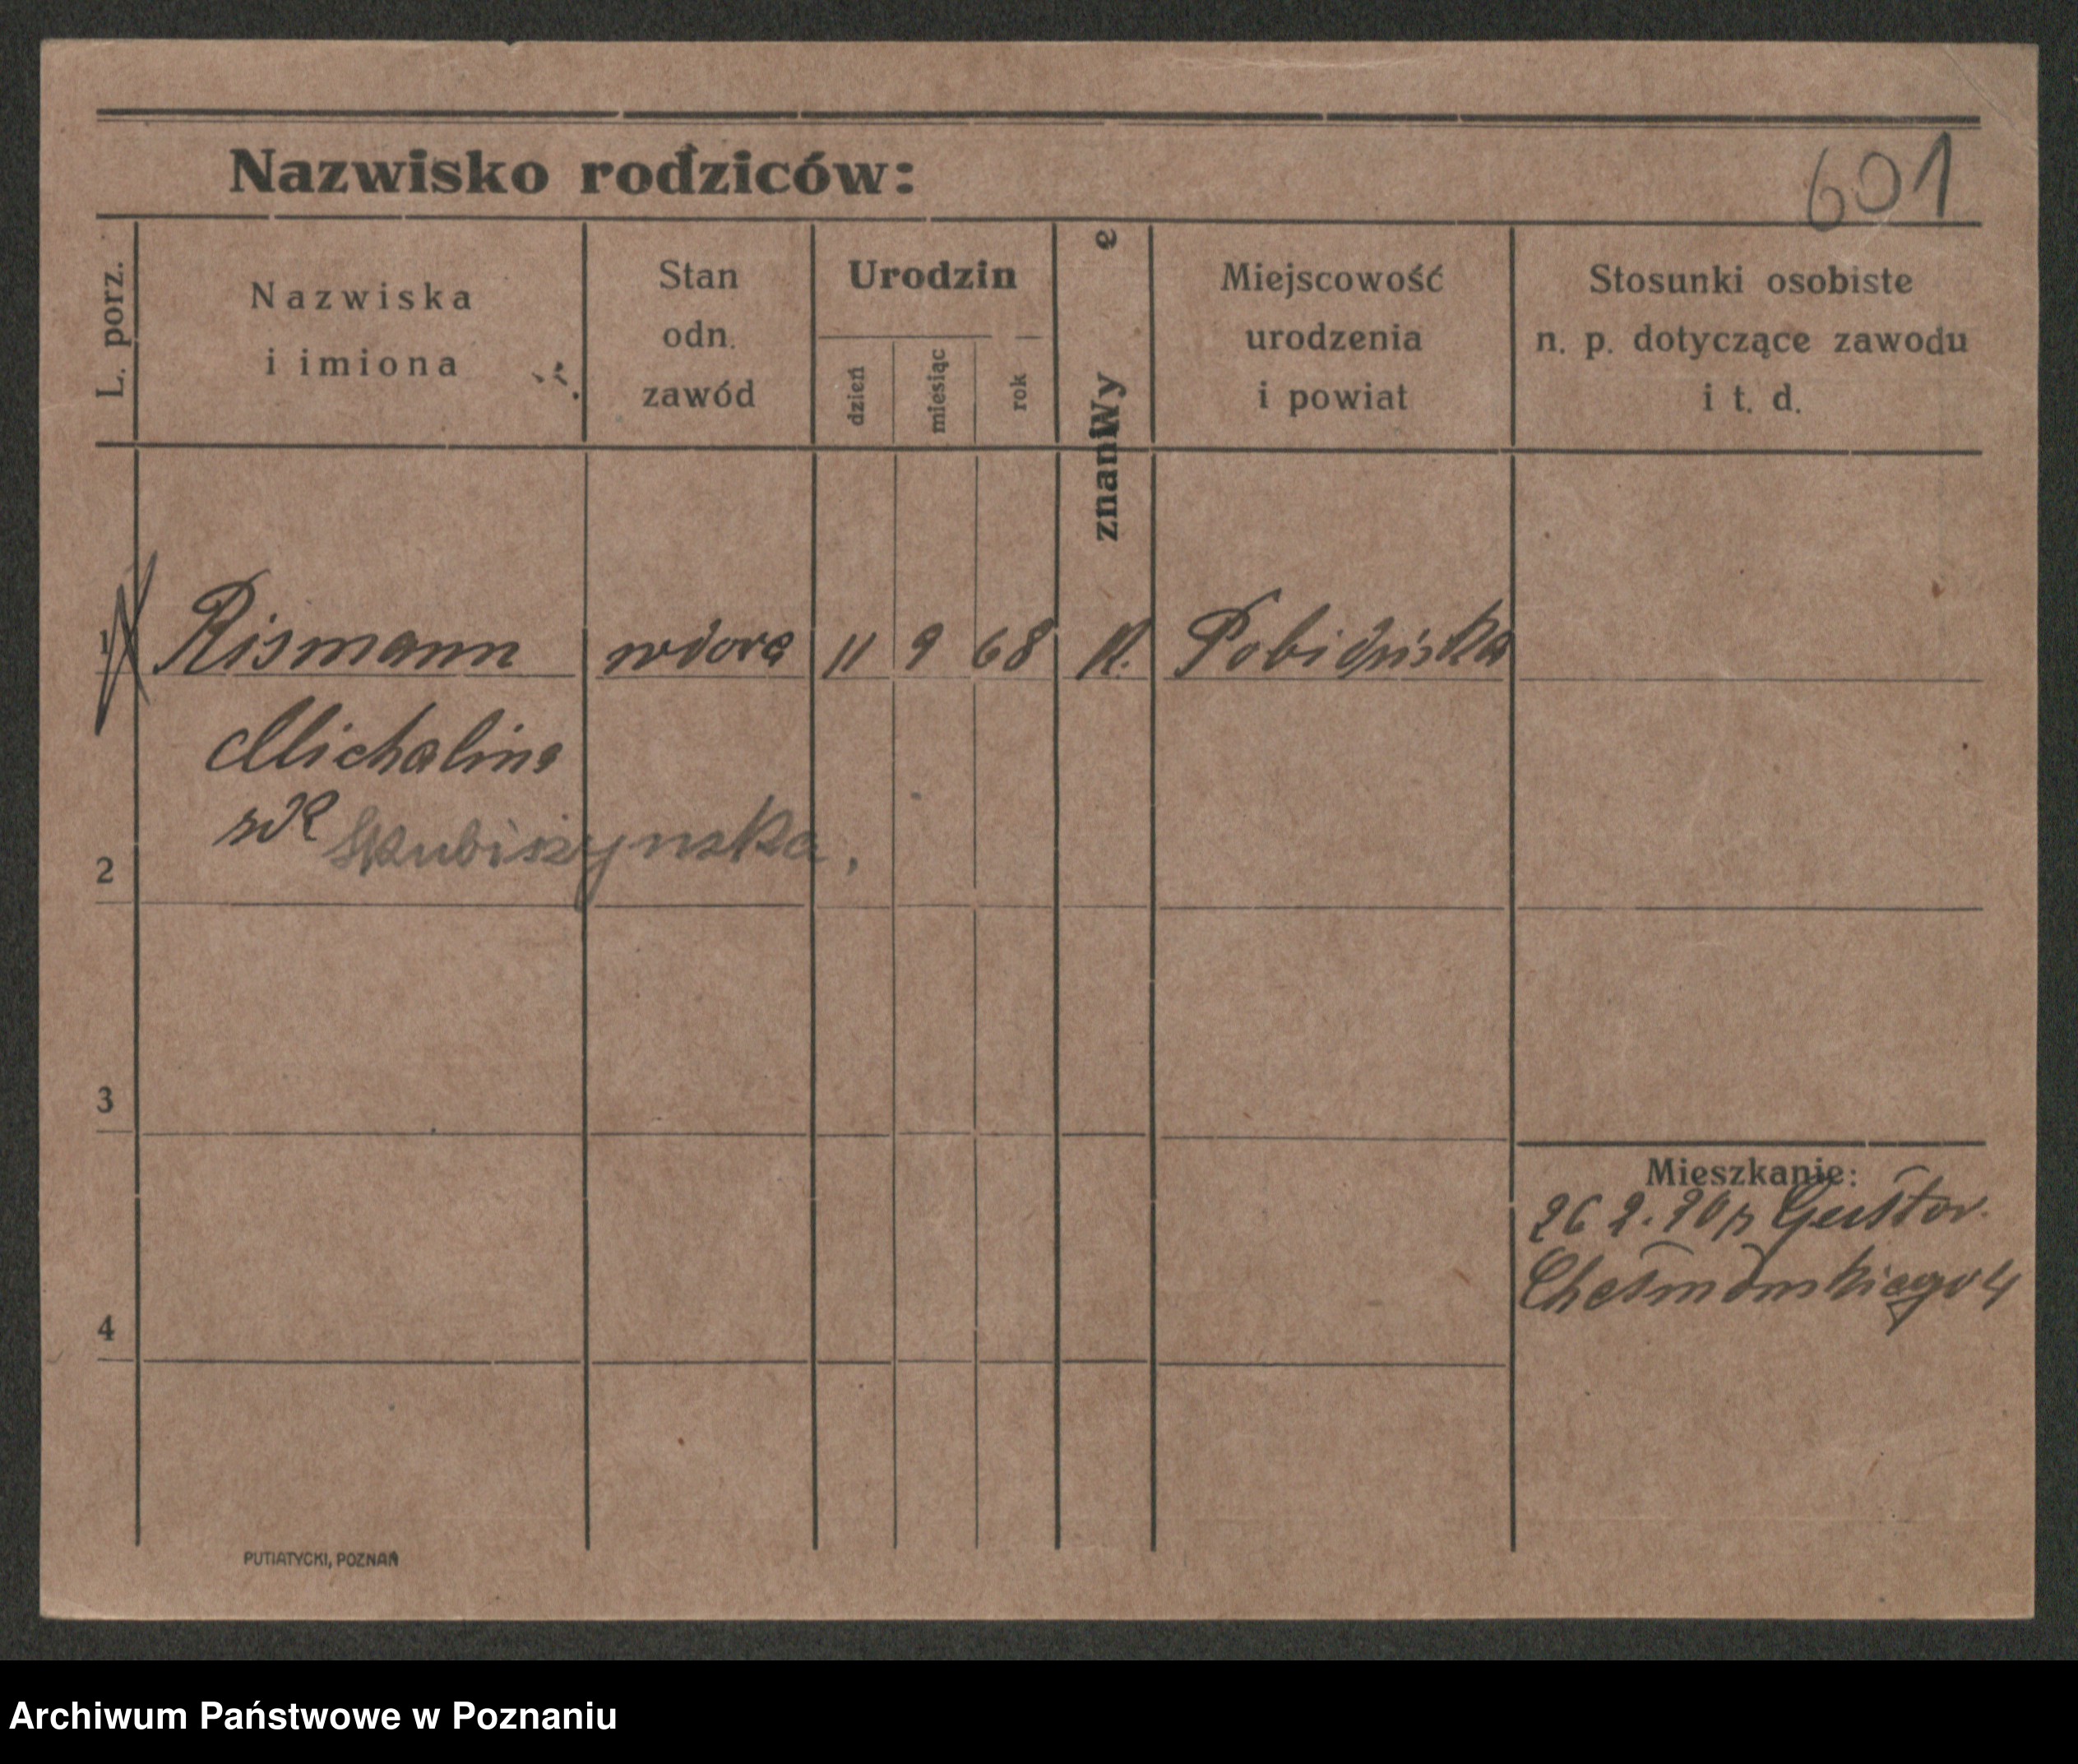 Nazwisko rodziców:
601
L. porz.
Nazwiska
i imiona
Stan
odn.
zawód
Urodzin
dzień
miesiąc
rok
Wy
znani
e
Miejscowość
urodzenia
i powiat
Stosunki osobiste
n. p. dotyczące zawodu
i t. d.
1 Rismann wdowa 11 9 68 K.
Michalina
Skubiszynska,
2
3
4
Mieszkanie:
Chełmońskiego 4
PUTIATYCKI, POZNAŃ
Archiwum Państwowe w Poznaniu